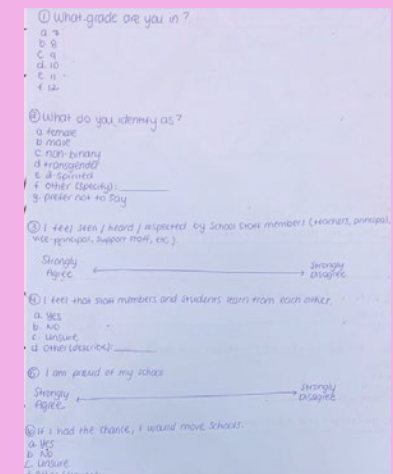 ① What grade are you in?
a 7
b 8
c 9
d. 10
e. 11
f. 12
② What do you identify as?
a. female
b male
c. non-binary
d transgender
e. 2-spirited
f. other (specify): ________
g. prefer not to say
③ I feel seen / heard / respected by School Staff members (teachers, principal,
vice-principal, support staff, etc.)
Strongly Agree Strongly Disagree
④ I feel that staff members and students learn from each other.
a. yes
b. NO
c. unsure
d. other (describe): ________
⑤ I am proud of my school.
Strongly Agree Strongly Disagree
⑥ If I had the chance, I would move schools.
a. yes
b. No
c. unsure